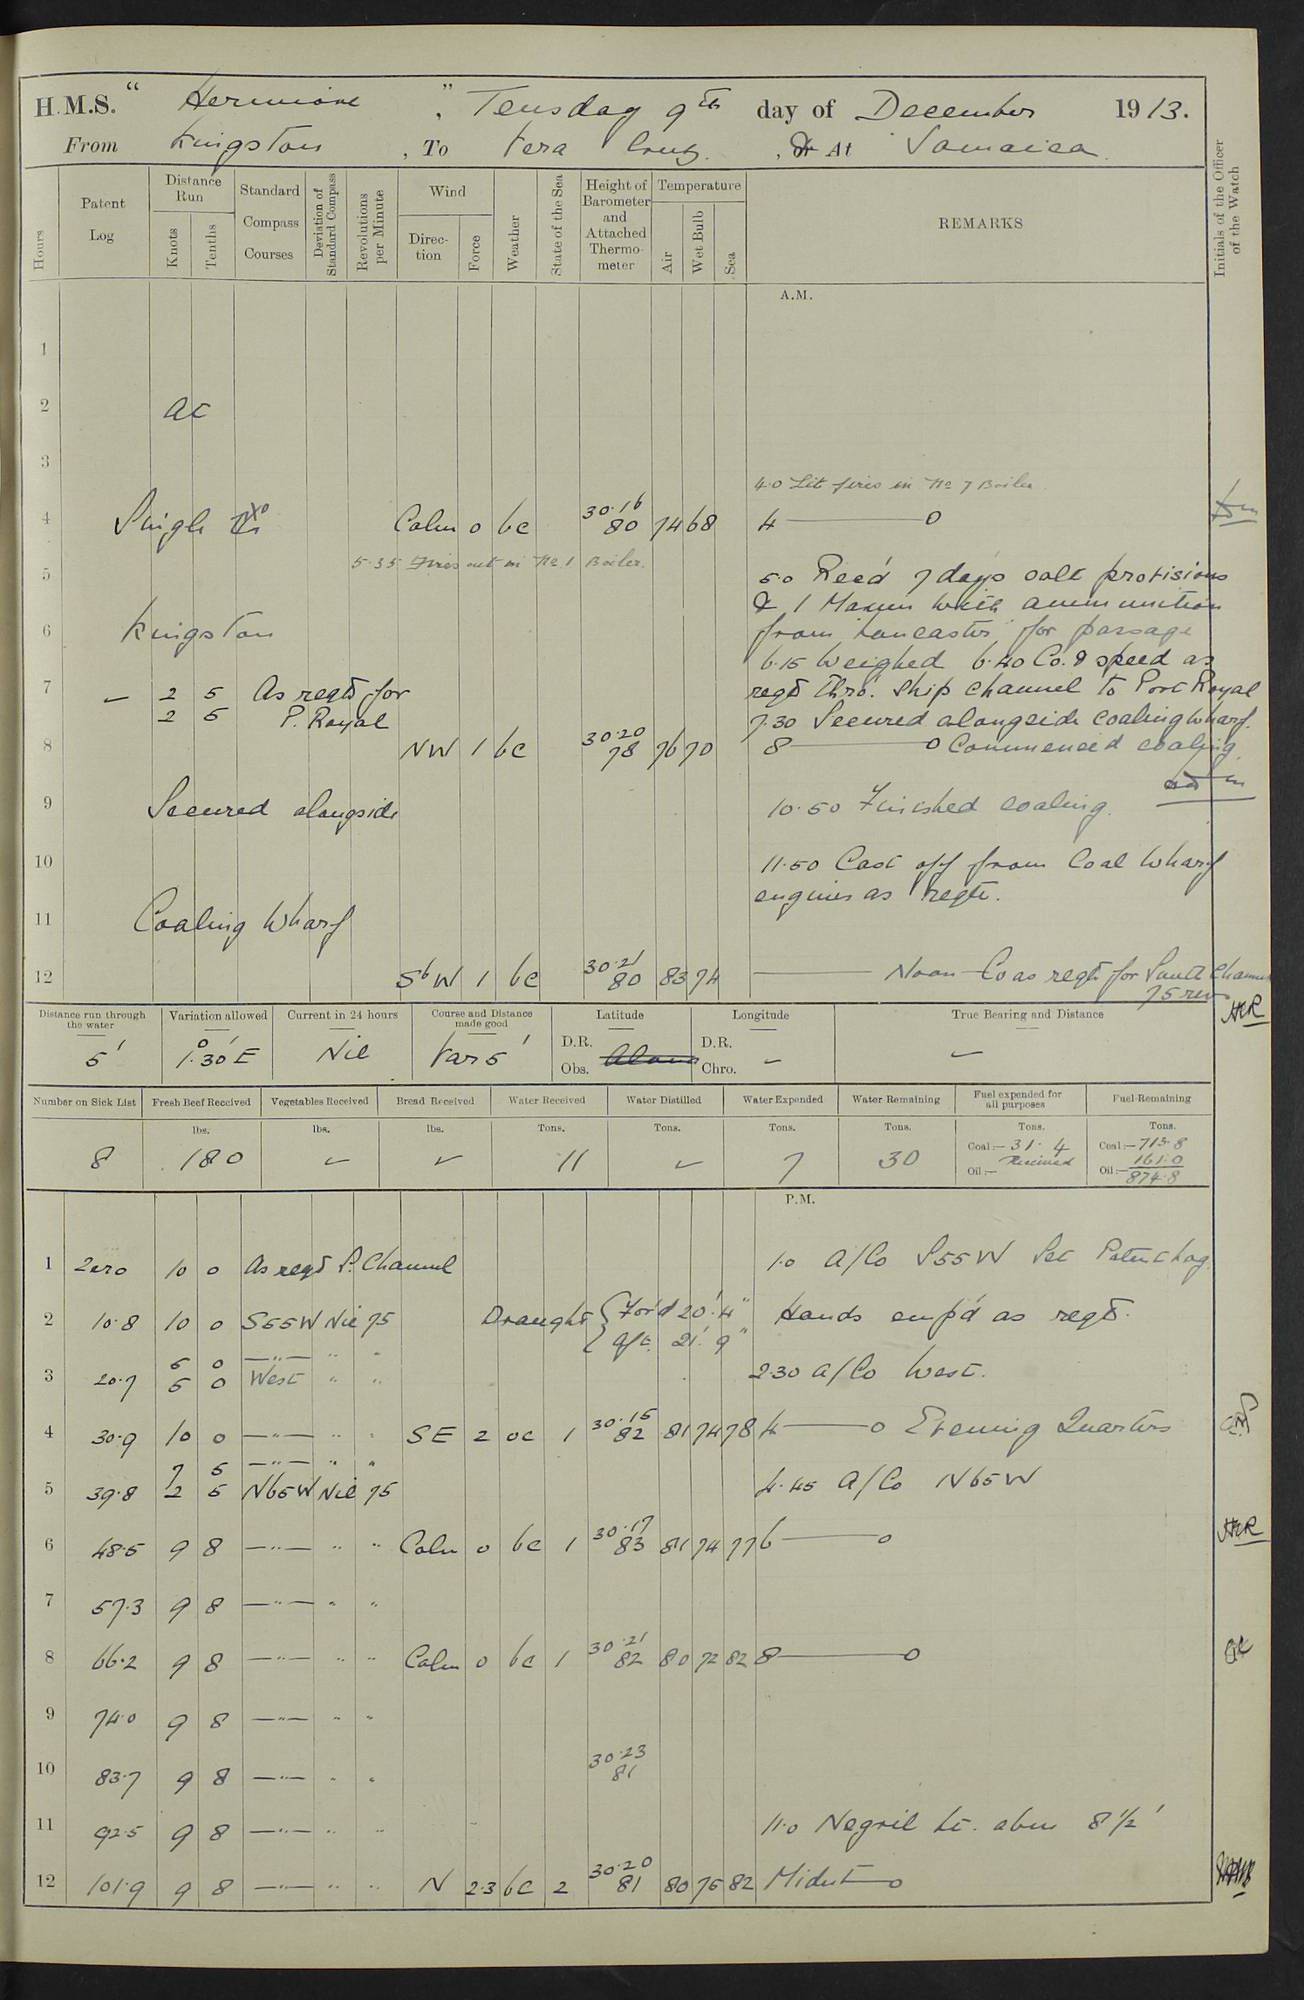 H.M.S. " Hermione ", Tuesday 9th day of December 1913.
From Kingston, To Vera Cruz, Or At Jamaica
Hours
Patent Log
Distance Run
Knots
Tenths
Standard Compass Courses
Deviation of Standard Compass
Revolutions per Minute
Wind
Direction
Force
Weather
State of the Sea
Height of Barometer and Attached Thermometer
Temperature
Air
Wet Bulb
Sea
REMARKS
Initials of the Officer of the Watch
A.M.
1
2 At
3
4.0 Lit fires in No 7 Boiler
4 Single Calm 0 bc 30.16 80 74 68 4 ——— 0
5.35 Fires out in No 1 Boiler.
5 5.0 Recd 7 days salt provisions
& 1 Maxim with ammunition
6 Kingston from "Lancaster" for passage
6.15 Weighed 6.40 Co. & speed as
7 – 2 5 As reqd for reqd thro' ship channel to Port Royal
2 5 P. Royal 7.30 Secured alongside coaling wharf.
8 NW 1 bc 30.20 78 76 70 8 ——— 0 Commenced coaling
9 Secured alongside 10.50 Finished coaling.
10 11.50 Cast off from Coal Wharf
engines as reqte.
11 Coaling Wharf
12 SbW 1 bc 30.21 80 83 74 ——— Noon – Co as reqd for South Channel
75 revs
Distance run through the water
Variation allowed
Current in 24 hours
Course and Distance made good
Latitude
Longitude
True Bearing and Distance
5' 1°.30' E Nil Var 5' D.R. D.R.
Obs. Chro. –
Number on Sick List
Fresh Beef Received
Vegetables Received
Bread Received
Water Received
Water Distilled
Water Expended
Water Remaining
Fuel expended for all purposes
Fuel Remaining
lbs. lbs. lbs. Tons. Tons. Tons. Tons. Tons. Tons.
8 180 – – 11 – 7 30 Coal:– 31.4 Coal:– 713.8
Received 161.0
Oil:– Oil:– 874.8
P.M.
1 Zero 10 0 As reqd S. Channel 1.0 A/Co S55W Set Patent Log.
2 10.8 10 0 S55W Nil 75 Draught { For'd 20'.4" Aft 21'. 9" Hands emp'd as reqd.
5 0 —"— " "
3 20.7 5 0 West " " 2.30 A/Co West.
4 30.9 10 0 —"— " " SE 2 oc 1 30.15 82 81 74 78 4 ——— 0 Evening Quarters
7 5 —"— " "
5 39.8 2 5 N65W Nil 75 4.45 A/Co N65W
6 48.5 9 8 —"— " " Calm 0 bc 1 30.17 83 81 74 77 6 ——— 0 HR
7 57.3 9 8 —"— " "
8 66.2 9 8 —"— " " Calm 0 bc 1 30.21 82 80 72 82 8 ——— 0
9 74.0 9 8 —"— " "
10 83.7 9 8 —"— " " 30.23 81
11 92.5 9 8 —"— " " 11.0 Negril Lt. abm 8½'
12 101.9 9 8 —"— " " N 2.3 bc 2 30.20 81 80 75 82 Midnt — 0